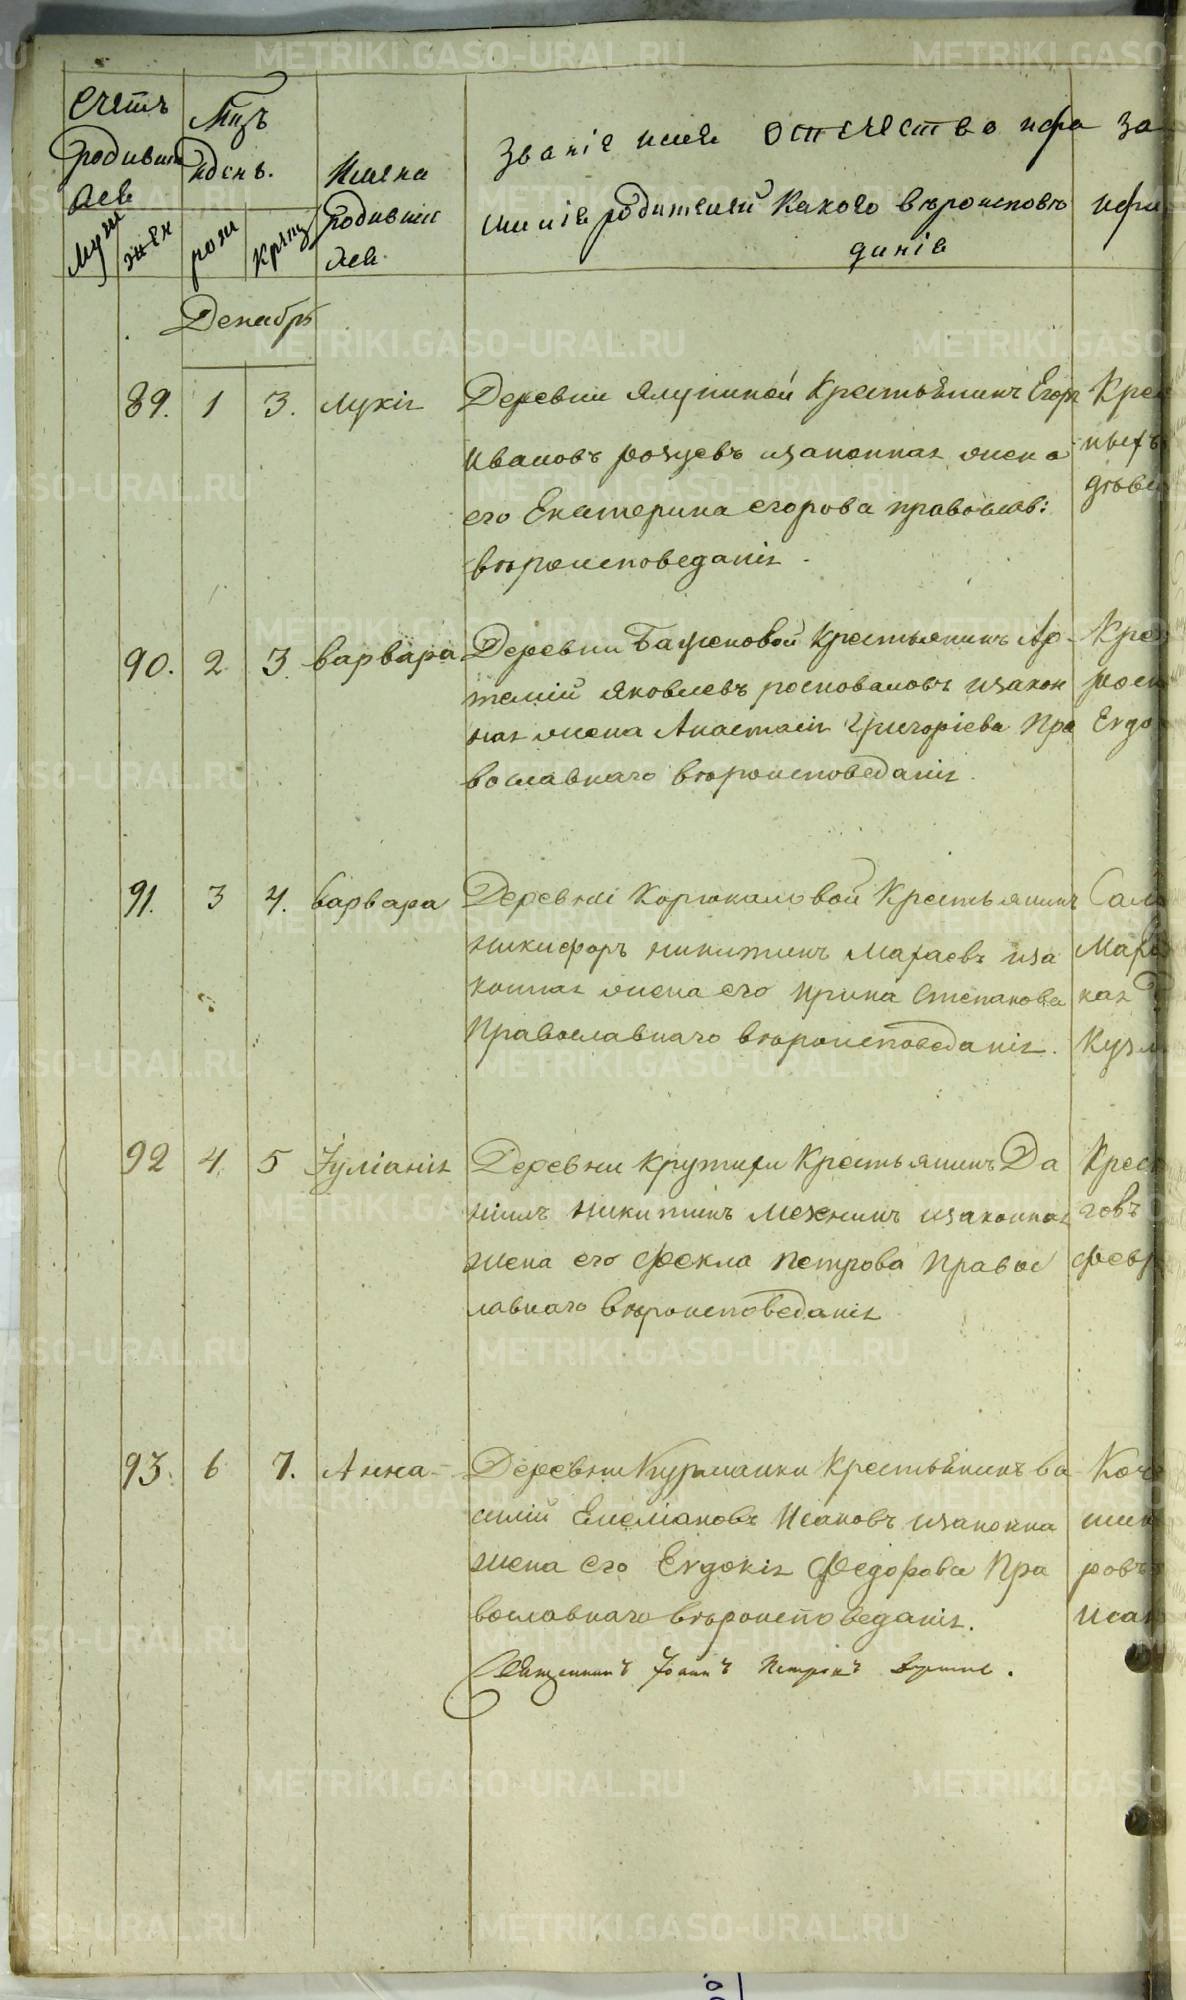 Счетъ
родивши
хся
Муж
жен
Мцъ
и день.
рож
крещ
Имена
родивших
ся.
Званіе имя отечество и фа
милія родителей и какого вѣроисповѣ
данія
За
и фа
Декабрь
89. 1 3. Лукія
Деревни Ялуниной Крестьянинъ Егоръ
Ивановъ и законная жена
его Екатерина Егорова православ:
вѣроисповеданія.
Крес
ныхъ
90. 2 3 Варвара
Деревни Баженовой Крестьянинъ Ар-
темій Яковлевъ роспоповъ и закон
ная жена Анастасія Григоріева Пра
вославнаго вѣроисповеданія.
Крес
Евдо
91. 3 4. Варвара
Деревни Корюкаловой Крестьянинъ
Никифоръ Никитинъ Махаевъ и за
конная жена его Ирина Степанова
Православнаго вѣроисповеданія.
Мар
кая
Кузм
92 4 5 Іуліанія
Деревни Крутихи Крестьянинъ Да
ніилъ Никитинъ Мехнинъ и законная
жена его Фекла Петрова Правос
лавнаго вѣроисповеданія
Крест
говъ
Февр
93. 6 7. Анна
Деревни Курманки Крестьянинъ Ва
силій Емеліановъ Исаковъ и законна
жена его Евдокія Федорова Пра
вославнаго вѣроисповеданія.
ровъ
Исак
Священникъ Іоаннъ Петровъ
METRIKI.GASO-URAL.RU